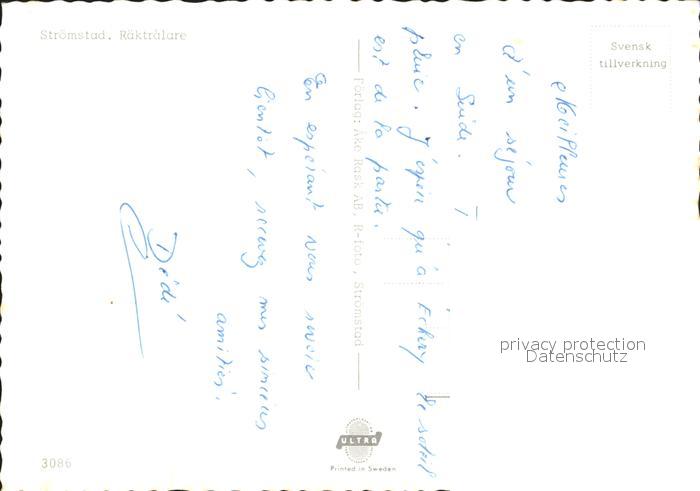 Strömstad. Räktrålare
Svensk
tillverkning
Meilleures
d'un séjour
en Suède. T
pluie. J'espère qu'à Echery le soleil
est de la partie.
En espérant vous revoir
bientôt, recevez mes sincères
amitiés.
Dédé
Förlag: Åke Rask AB, R-foto, Strömstad
privacy protection
Datenschutz
ULTRA
Printed in Sweden
3086